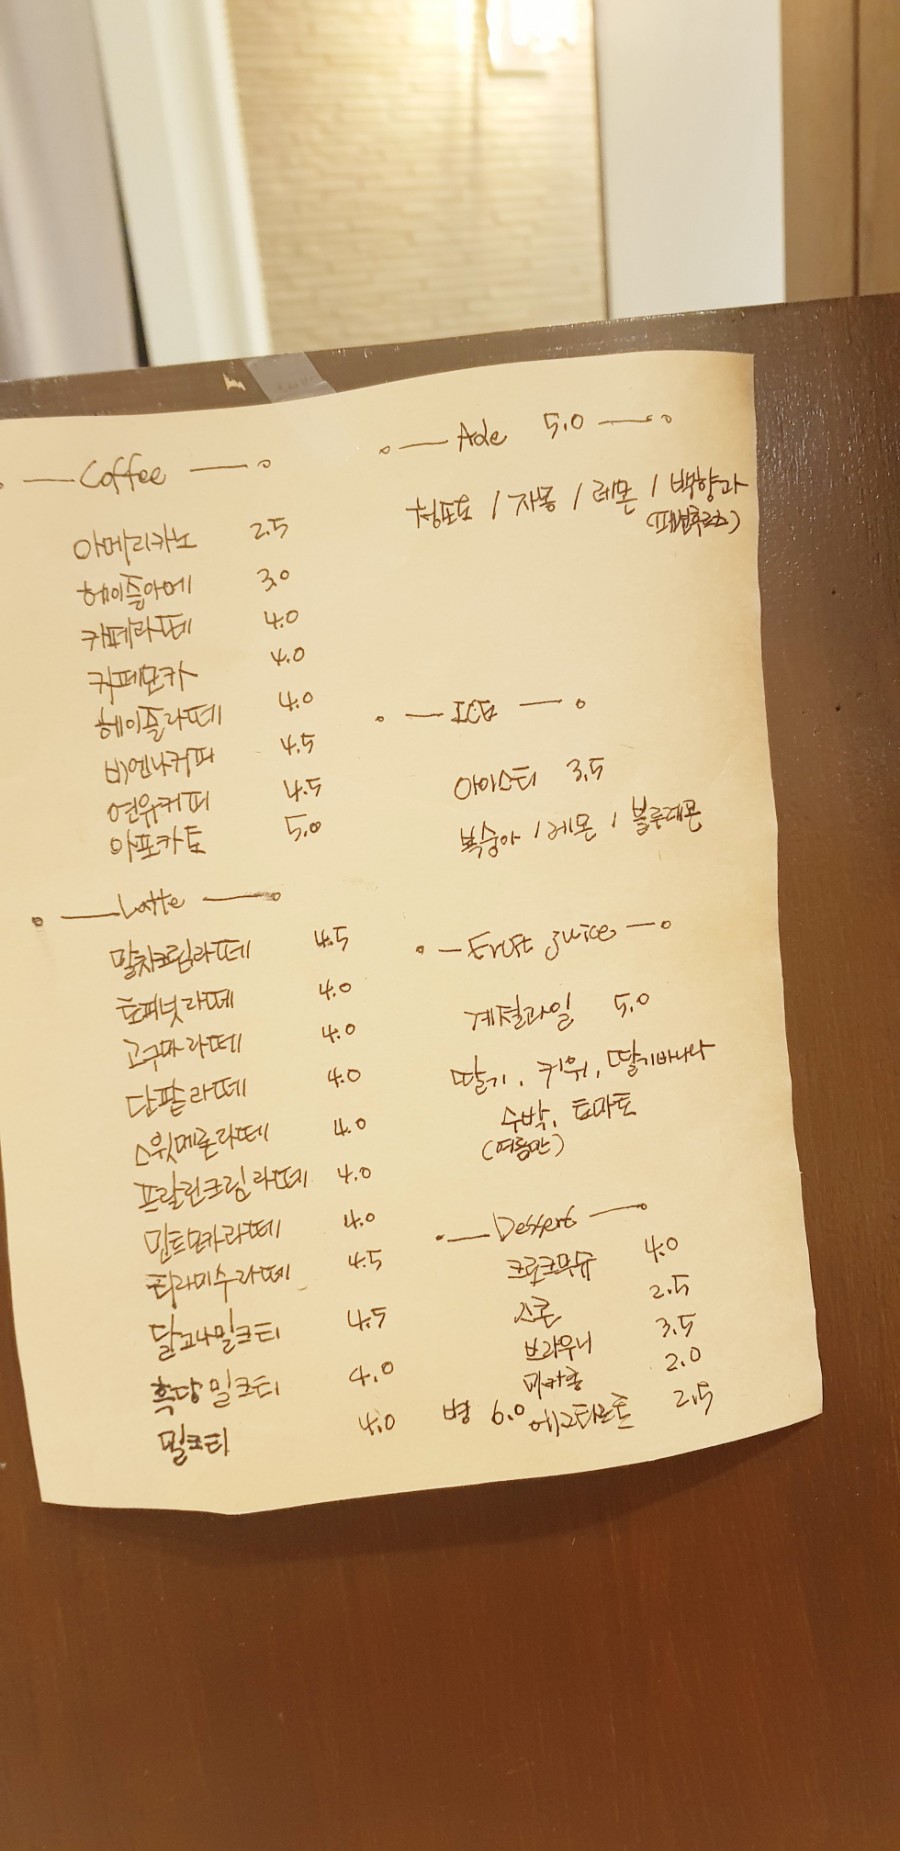 Coffee
아메리카노 2.5
헤이즐아메 3.0
카페라떼 4.0
카페모카 4.0
헤이즐라떼 4.0
비엔나커피 4.5
연유커피 4.5
아포카토 5.0
Latte
말차크림라떼 4.5
토피넛라떼 4.0
고구마라떼 4.0
단팥라떼 4.0
스윗메론라떼 4.0
프랄린크림라떼 4.0
민트모카라떼 4.0
티라미수라떼 4.5
달고나밀크티 4.5
흑당밀크티 4.0
밀크티 4.0 병 6.0
Ade 5.0
청포도 / 자몽 / 레몬 / 백향과
(패션후르츠)
ICE
아이스티 3.5
복숭아 / 레몬 / 블루레몬
Fruit juice
계절과일 5.0
딸기, 키위, 딸기바나나
수박, 토마토
(여름만)
Dessert
크로크무슈 4.0
스콘 2.5
브라우니 3.5
마카롱 2.0
에그타르트 2.5